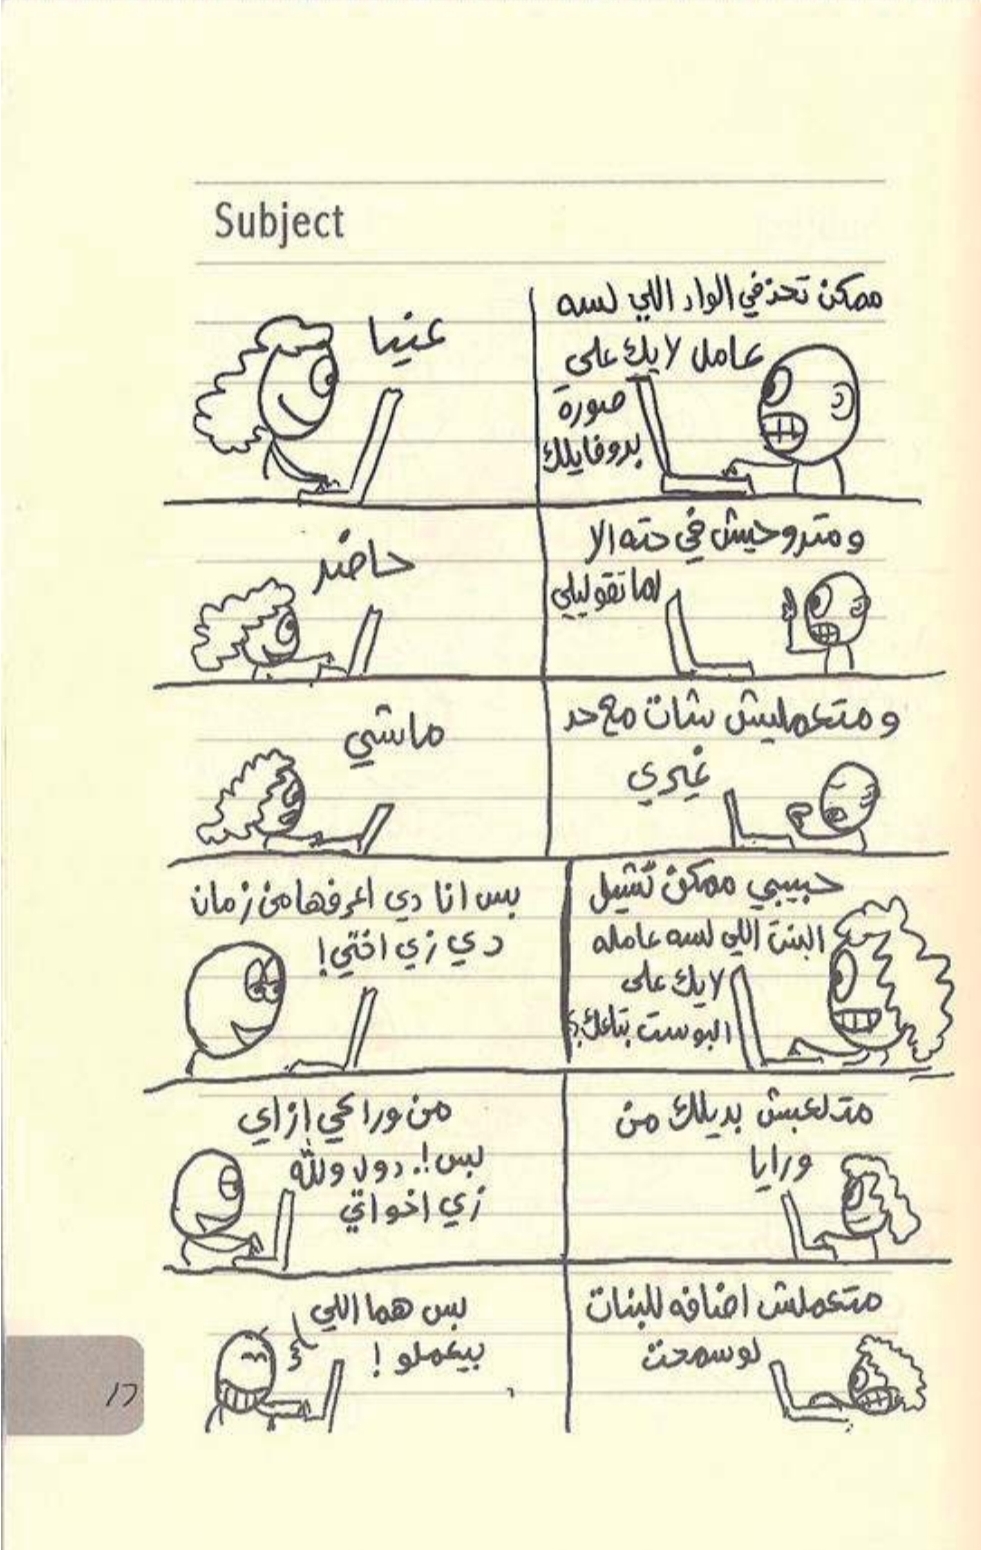 Subject
ممكن تحذفي الواد اللي لسه
عامل لايك على
صورة
بروفايلك
عنيا
ومتروحيش في حته الا
لما تقوليلي
حاضر
ومتعمليش شات مع حد
غيري
ماشي
حبيبي ممكن تشيل
البنت اللي لسه عامله
لايك على
البوست بتاعك؟
بس انا دي اعرفها من زمان
دي زي اختي!
متلعبش بديلك من
ورايا
من وراكي ازاي
بس!. دول والله
زي اخواتي
متعملش اضافه للبنات
لو سمحت
بس هما اللي
بيعملو!
١٦